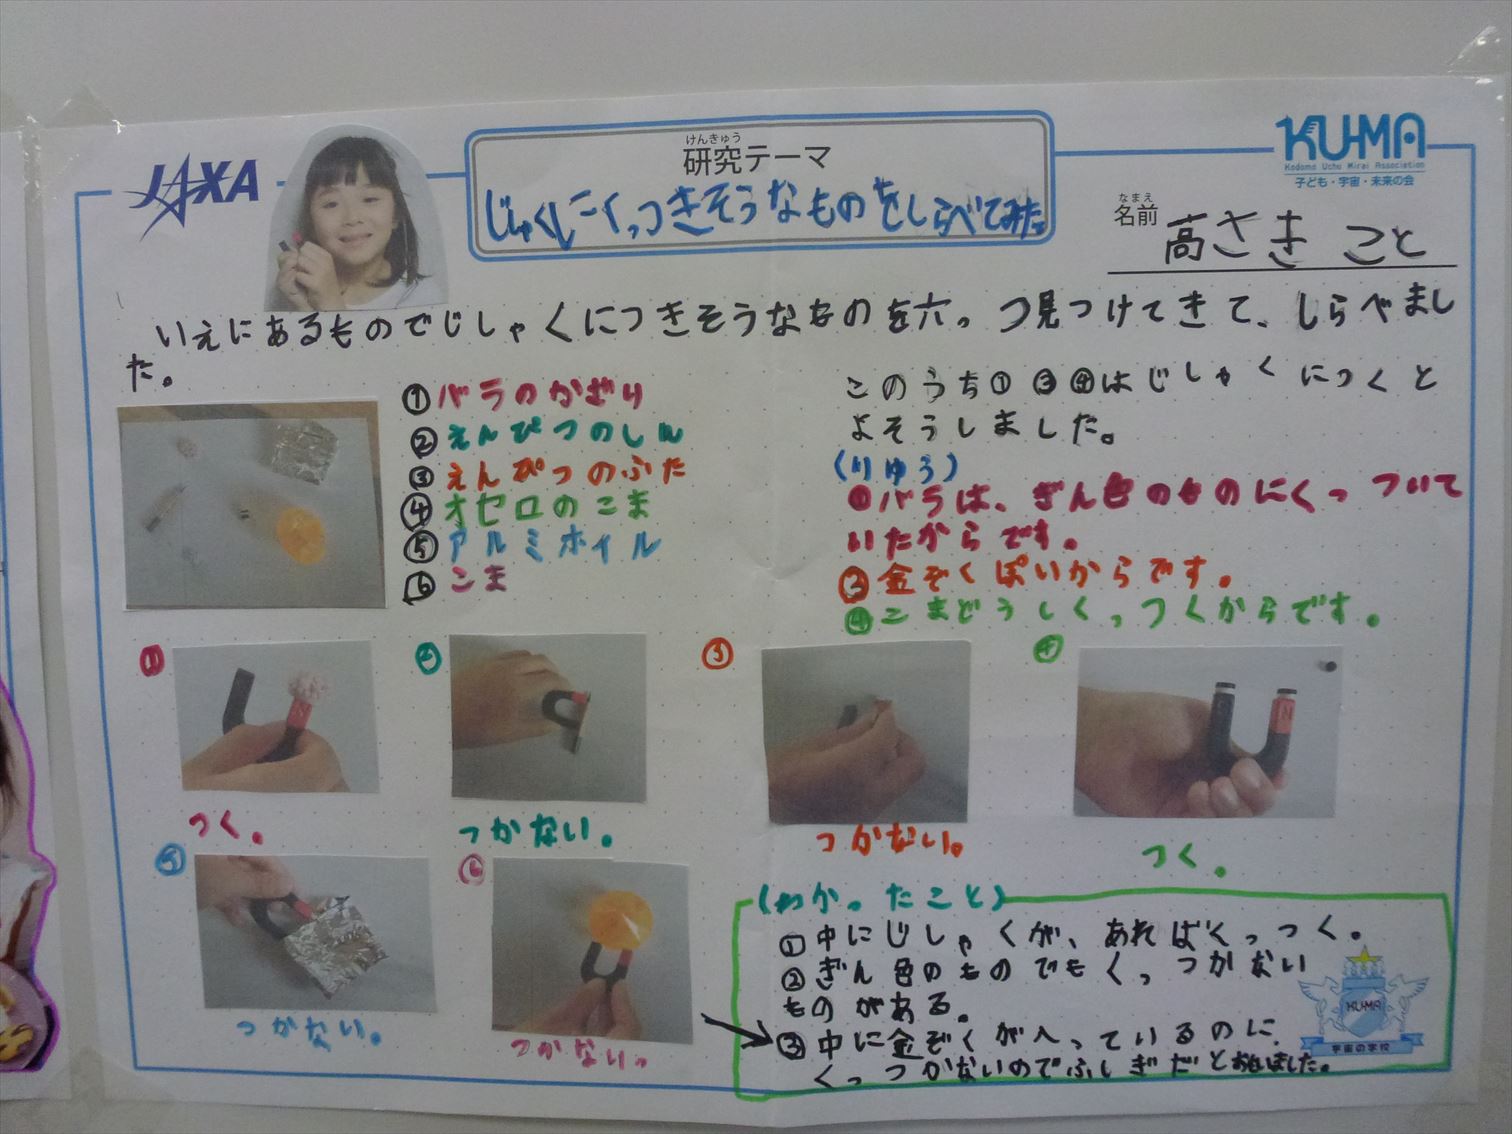 JAXA
けんきゅう
研究テーマ
じしゃくにくっつきそうなものをしらべてみた
KU-MA
Kodomo Uchu Mirai Association
子ども・宇宙・未来の会
なまえ
名前
高さき こと
いえにあるものでじしゃくにつきそうなものを六っつ見つけてきて、しらべまし
た。
①バラのかざり
②えんぴつのしん
③えんぴつのふた
④オセロのこま
⑤アルミホイル
⑥こま
このうち①③④はじしゃくにつくと
よそうしました。
(りゆう)
①バラは、ぎん色のものにくっついて
いたからです。
③金ぞくぽいからです。
④こまどうしくっつくからです。
①
つく。
②
つかない。
③
つかない。
④
N
つく。
⑤
つかない。
⑥
つかない。
(わかったこと)
①中にじしゃくが、あればくっつく。
②ぎん色のものでもくっつかない
ものがある。
③中に金ぞくがへっているのに
くっつかないのでふしぎだとおもいました。
KU-MA
宇宙の学校